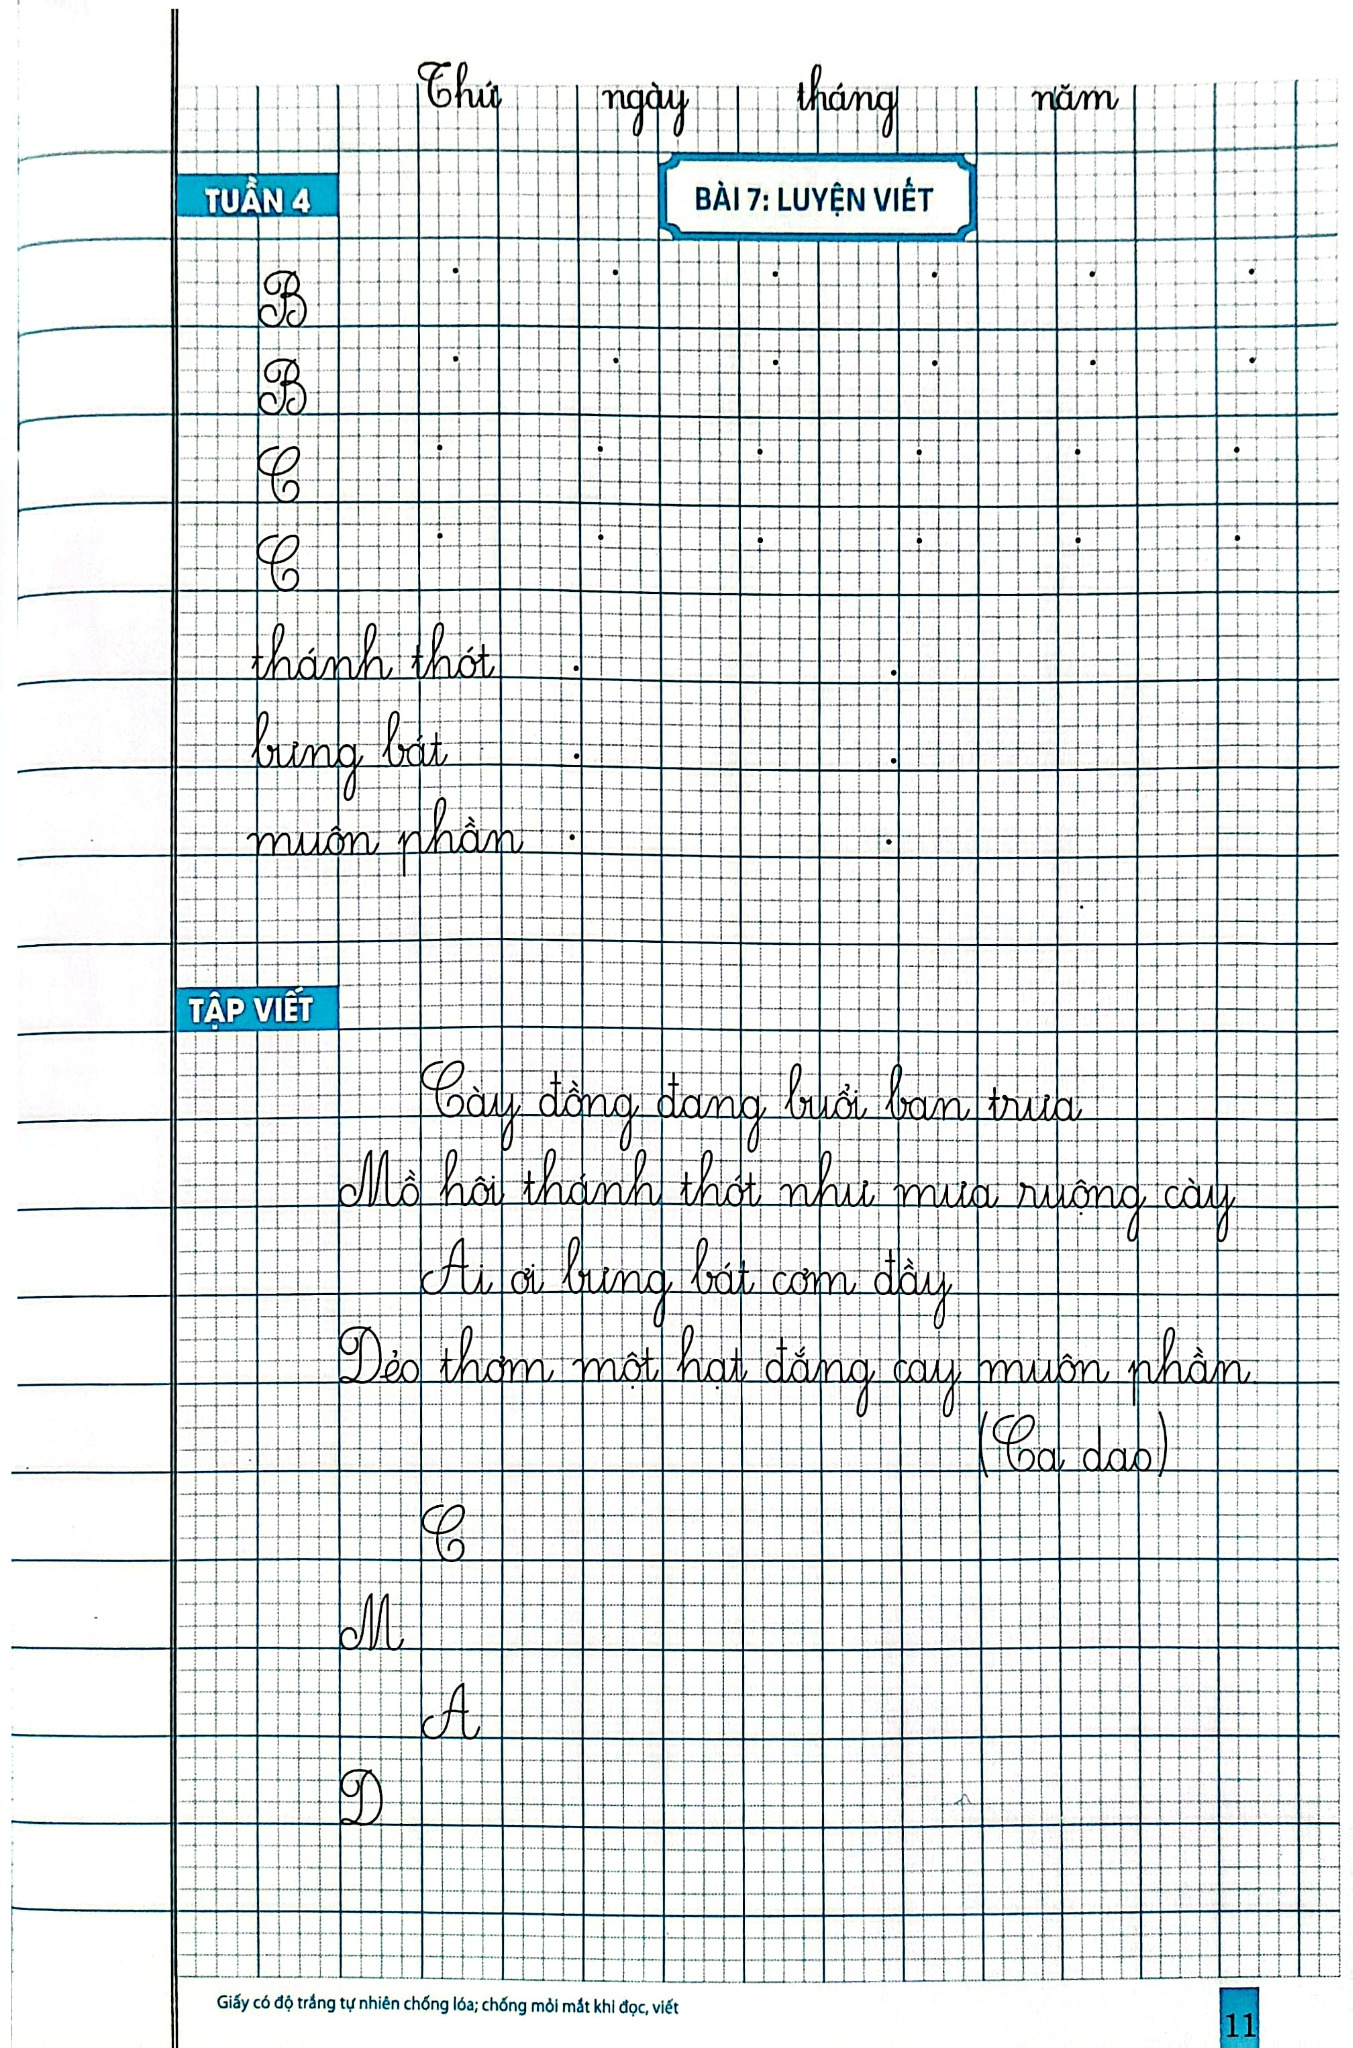 Thứ ngày tháng năm
TUẦN 4
BÀI 7: LUYỆN VIẾT
B
B
C
C
thánh thót
bưng bát
muôn phần
TẬP VIẾT
Cày đồng đang buổi ban trưa
Mồ hôi thánh thót như mưa ruộng cày
Ai ơi bưng bát cơm đầy
Dẻo thơm một hạt đắng cay muôn phần.
(Ca dao)
C
M
A
D
Giấy có độ trắng tự nhiên chống lóa; chống mỏi mắt khi đọc, viết
11